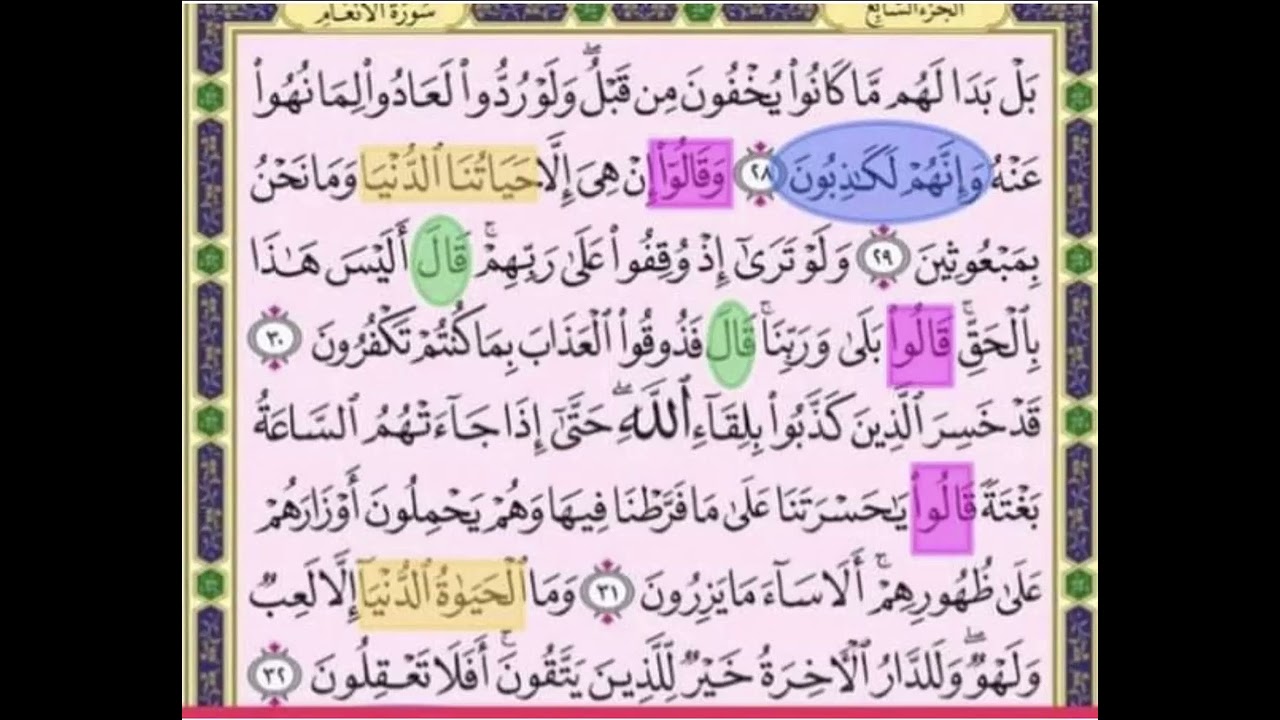 الجزء السابع
سورة الأنعام
بَلْ بَدَا لَهُم مَّا كَانُوا۟ يُخْفُونَ مِن قَبْلُ ۖ وَلَوْ رُدُّوا۟ لَعَادُوا۟ لِمَا نُهُوا۟
عَنْهُ وَإِنَّهُمْ لَكَـٰذِبُونَ ٢٨ وَقَالُوٓا۟ إِنْ هِىَ إِلَّا حَيَاتُنَا ٱلدُّنْيَا وَمَا نَحْنُ
بِمَبْعُوثِينَ ٢٩ وَلَوْ تَرَىٰٓ إِذْ وُقِفُوا۟ عَلَىٰ رَبِّهِمْ ۚ قَالَ أَلَيْسَ هَـٰذَا
بِٱلْحَقِّ ۚ قَالُوا۟ بَلَىٰ وَرَبِّنَا ۚ قَالَ فَذُوقُوا۟ ٱلْعَذَابَ بِمَا كُنتُمْ تَكْفُرُونَ ٣٠
قَدْ خَسِرَ ٱلَّذِينَ كَذَّبُوا۟ بِلِقَآءِ ٱللَّهِ ۖ حَتَّىٰٓ إِذَا جَآءَتْهُمُ ٱلسَّاعَةُ
بَغْتَةً قَالُوا۟ يَـٰحَسْرَتَنَا عَلَىٰ مَا فَرَّطْنَا فِيهَا وَهُمْ يَحْمِلُونَ أَوْزَارَهُمْ
عَلَىٰ ظُهُورِهِمْ ۚ أَلَا سَآءَ مَا يَزِرُونَ ٣١ وَمَا ٱلْحَيَوٰةُ ٱلدُّنْيَآ إِلَّا لَعِبٌ
وَلَهْوٌ ۖ وَلَلدَّارُ ٱلْـَٔاخِرَةُ خَيْرٌ لِّلَّذِينَ يَتَّقُونَ ۗ أَفَلَا تَعْقِلُونَ ٣٢